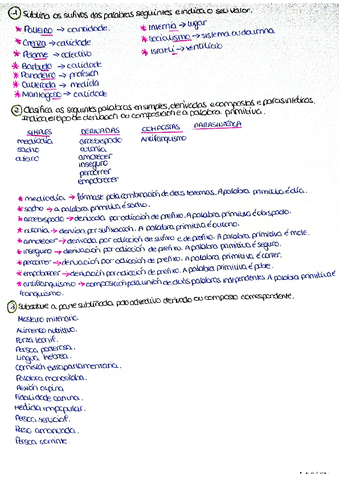 ① Subliña os sufixos das palabras seguintes e indica o seu valor.
* Poleiro → cantidade. * Invernía → lugar
* → calidade * Socialismo → sistema ou doutrina.
* → colectivo * Israelí → xentilicio
* Barbudo → calidade
* Panadeiro → profesión
* Cullerada → medida
* → calidade
② Clasifica as seguintes palabras en simples, derivadas e compostas e parasintéticas.
Indica el tipo de derivación ou composición e a palabra primitiva.
SIMPLES DERIVADAS COMPOSTAS PARASINTÉTICA
mediodía arcebispado Antifranquismo
sacho
outeiro amolecer
inseguro
percorrer
empobrecer
* mediodía → fórmase pola combinación de dous lexemas. A palabra primitiva é día.
* sacho → a palabra primitiva é sacho.
* arcebispado → derivada por adición de prefixo. A palabra primitiva é bispado.
* → deriva por sufixación. A palabra primitiva é
* amolecer → derivada por adición de sufixo e de prefixo. A palabra primitiva é mole.
* inseguro → derivación por adición de prefixo. A palabra primitiva é seguro.
* percorrer → derivación por adición de prefixo. A palabra primitiva é correr.
* empobrecer → derivación por adición de prefixo. A palabra primitiva é pobre.
* antifranquismo → composición pola unión de dúas palabras independentes. A palabra primitiva é
franquismo.
③ Substitúe a parte subliñada polo adxectivo derivado ou composto correspondente.
Mosteiro milenario.
Alimento nutritivo.
Forza
Persoa poderosa.
Lingua hebrea.
Comisión extraparlamentaria.
Palabra monosílaba.
Flexión
Fidalidade canina.
Medida impopular.
Persoa servicial.
Persoa